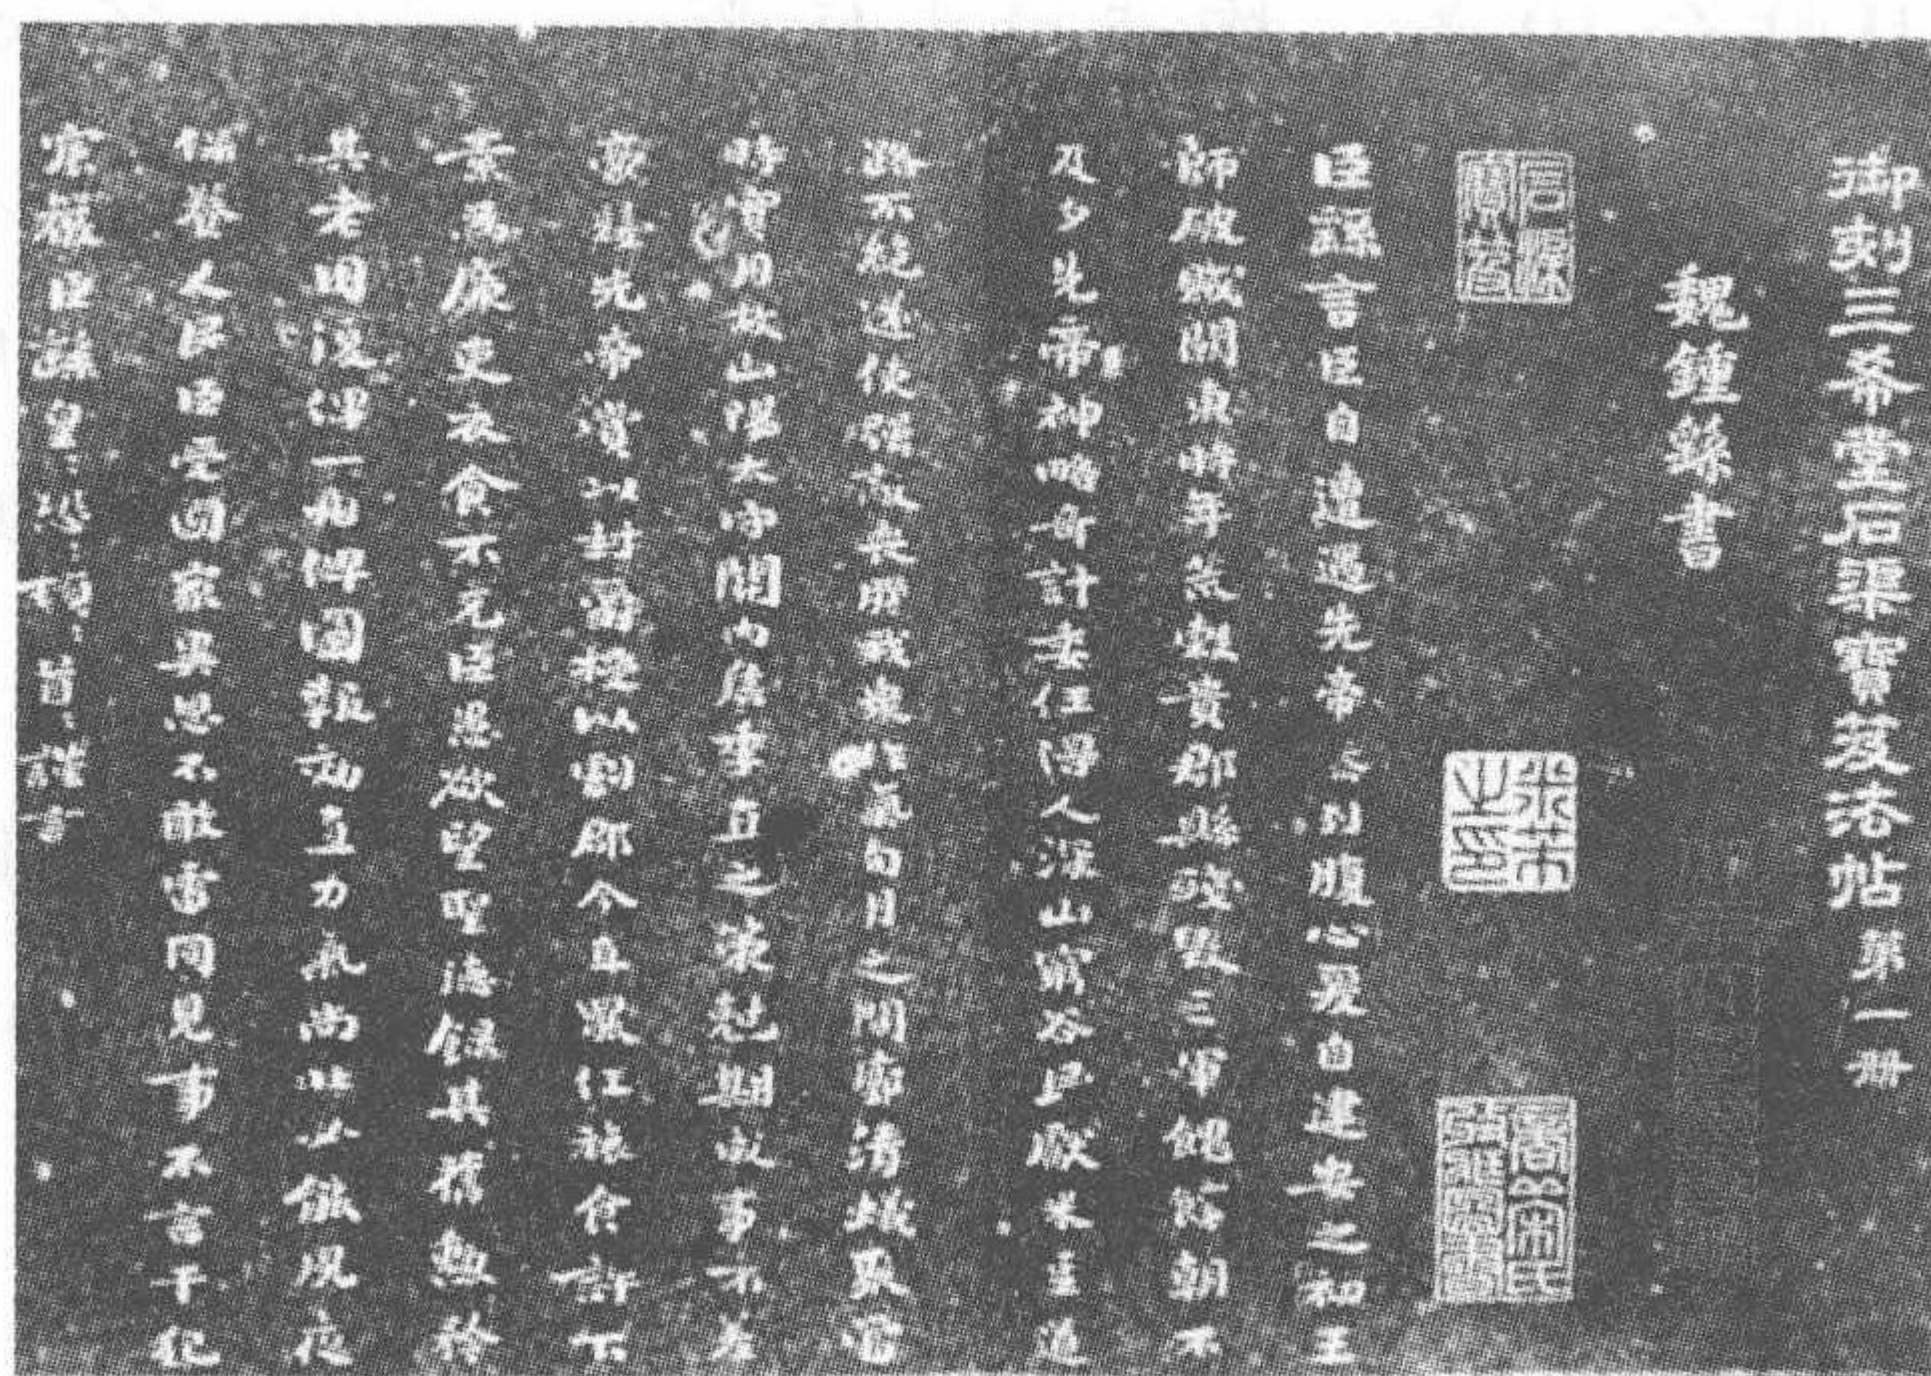 御刻三希堂石渠寶笈法帖第一冊
魏鍾繇書
米芾之印
臣繇言臣自遭遇先帝忝列腹心爰自建安之初王
師破賊關東時年荒穀貴郡縣殘毀三軍餽饟朝不
及夕先帝神略奇計委任得人深山窮谷民獻米豆道
路不絕遂使強敵喪膽我衆作氣旬月之間廓清蟻聚當
時實用故山陽太守關內侯季直之策剋期成事不差
豪髮先帝賞以封爵授以劇郡今直罷任旅食許下
素爲廉吏衣食不充臣愚欲望聖德錄其舊勳矜
其老困復俾一州俾圖報効直力氣尚壯必能夙夜
保養人民臣受國家異恩不敢雷同見事不言干犯
宸嚴臣繇皇:恐:頓:首:謹言